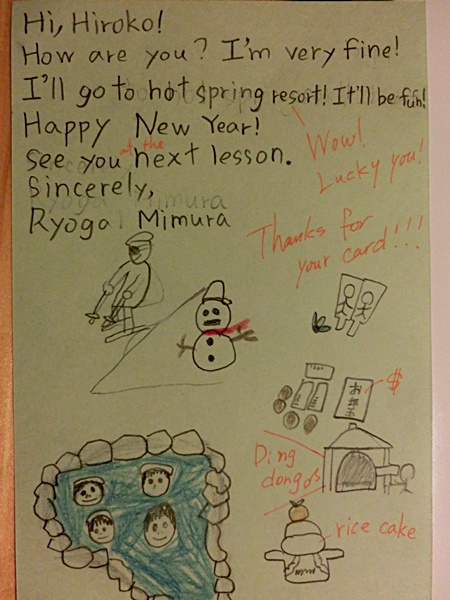 Hi, Hiroko!
How are you? I'm very fine!
I'll go to hot spring resort! It'll be fun!
Happy New Year!
Wow!
Lucky you!
See you at the next lesson.
Sincerely,
Ryoga Mimura
Thanks for
your card!!!
$
お年玉
Ding
dong
rice cake